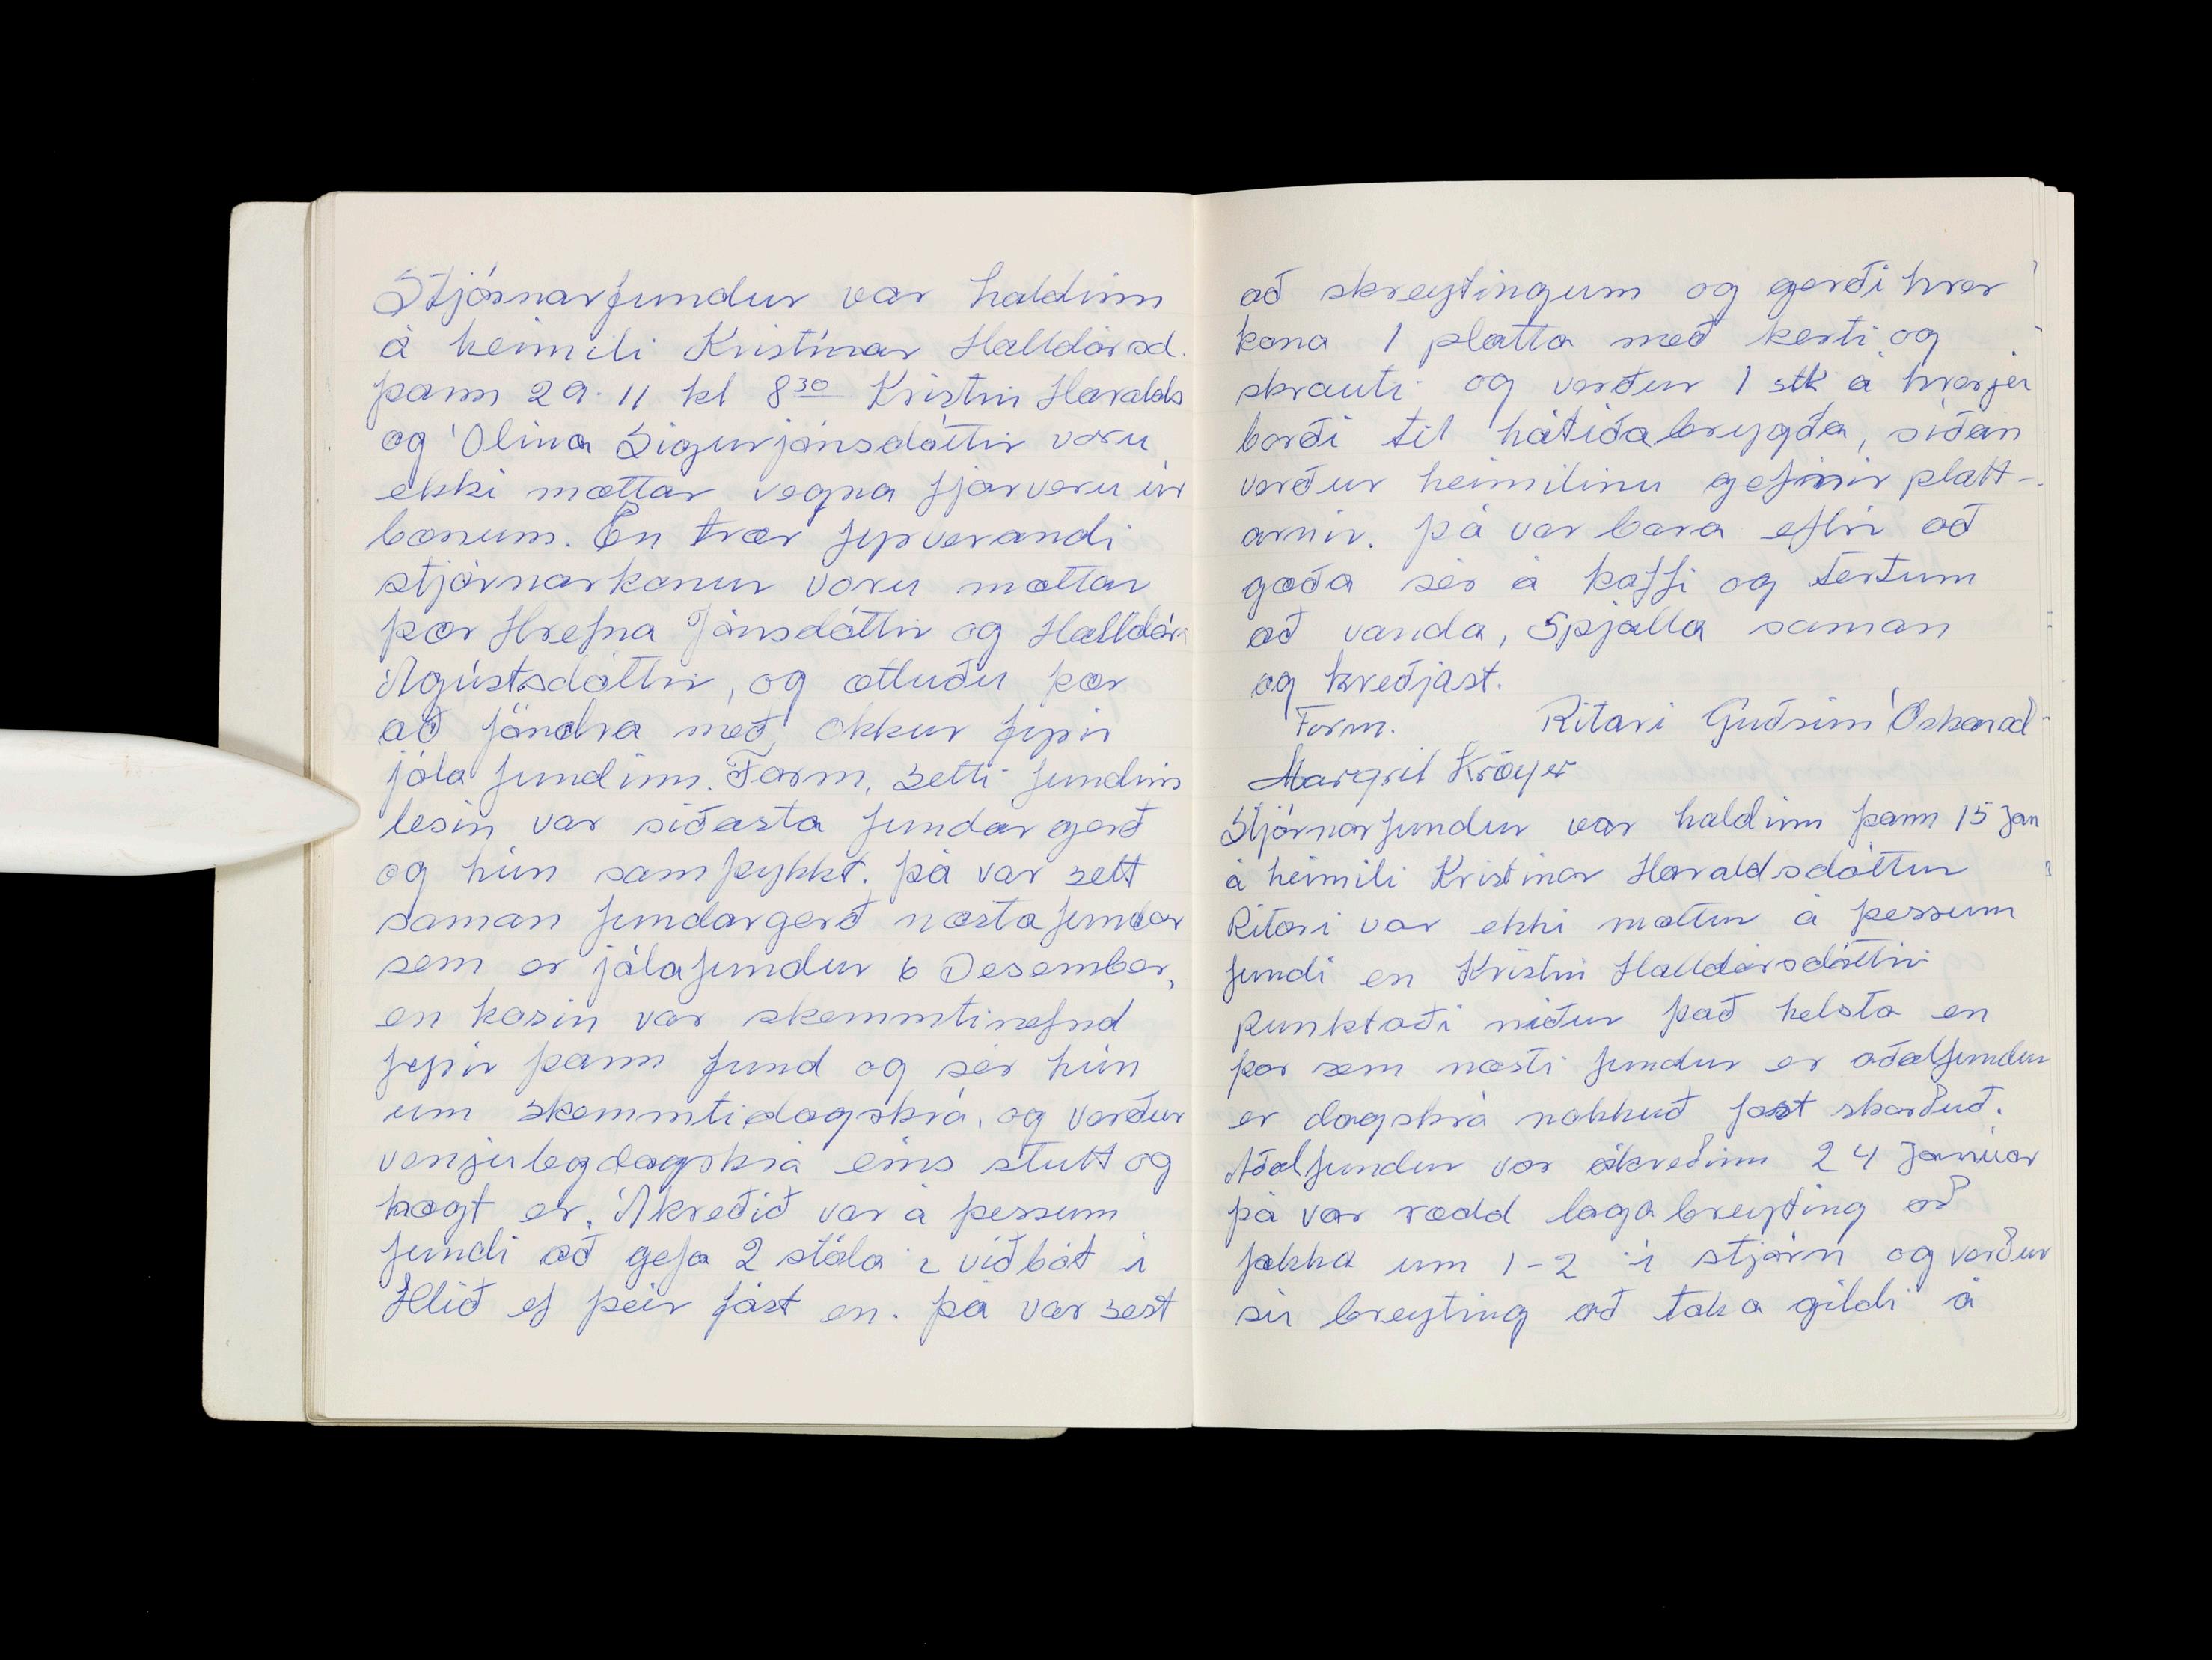 Stjórnarfundur var haldinn
á heimili Kristínar Halldórsd.
þann 29.11 kl 8³⁰ Kristín Haralds
og Ólína Sigurjónsdóttir voru
ekki mættar vegna fjarveru úr
bænum. En tvær fyrverandi
stjórnarkonur voru mættar
þær Hrefna Jónsdóttir og Halldór
Ágústsdóttir, og ætluðu þær
að föndra með okkur fyrir
jóla fundinn. Form. setti fundinn
lesin var síðasta fundargerð
og hún samþykkt. þá var sett
saman fundargerð næsta fundar
sem er jólafundur 6 Desember,
en kosin var skemmtinefnd
fyrir þann fund og sér hún
um skemmtidagskrá, og verður
venjuleg dagskrá eins stutt og
hægt er. Ákveðið var á þessum
fundi að gefa 2 stóla í viðbót í
Hlíð ef þeir fást en. þá var sest
að skreytingum og gerði hver
kona 1 platta með kerti og
skrauti og verður 1 stk á hverju
borði til hátíðabrygða, síðan
verður heimilinu gefnir platt-
arnir. þá var bara eftir að
gæða sér á kaffi og tertum
að vanda, Spjalla saman
og kveðjast.
Form. Ritari Guðrún Óskarsd
Margrét Kröyer
Stjórnarfundur var haldinn þann 15 Jan
á heimili Kristínar Haraldsdóttur
Ritari var ekki mættur á þessum
fundi en Kristín Halldórsdóttir
punktaði niður það helsta en
þar sem næsti fundur er aðalfundur
er dagskrá nokkuð fast skorðuð.
Aðalfundur var ákveðinn 24 Janúar
þá var rædd lagabreyting að
fækka um 1-2 í stjórn og verður
sú breyting að taka gildi á